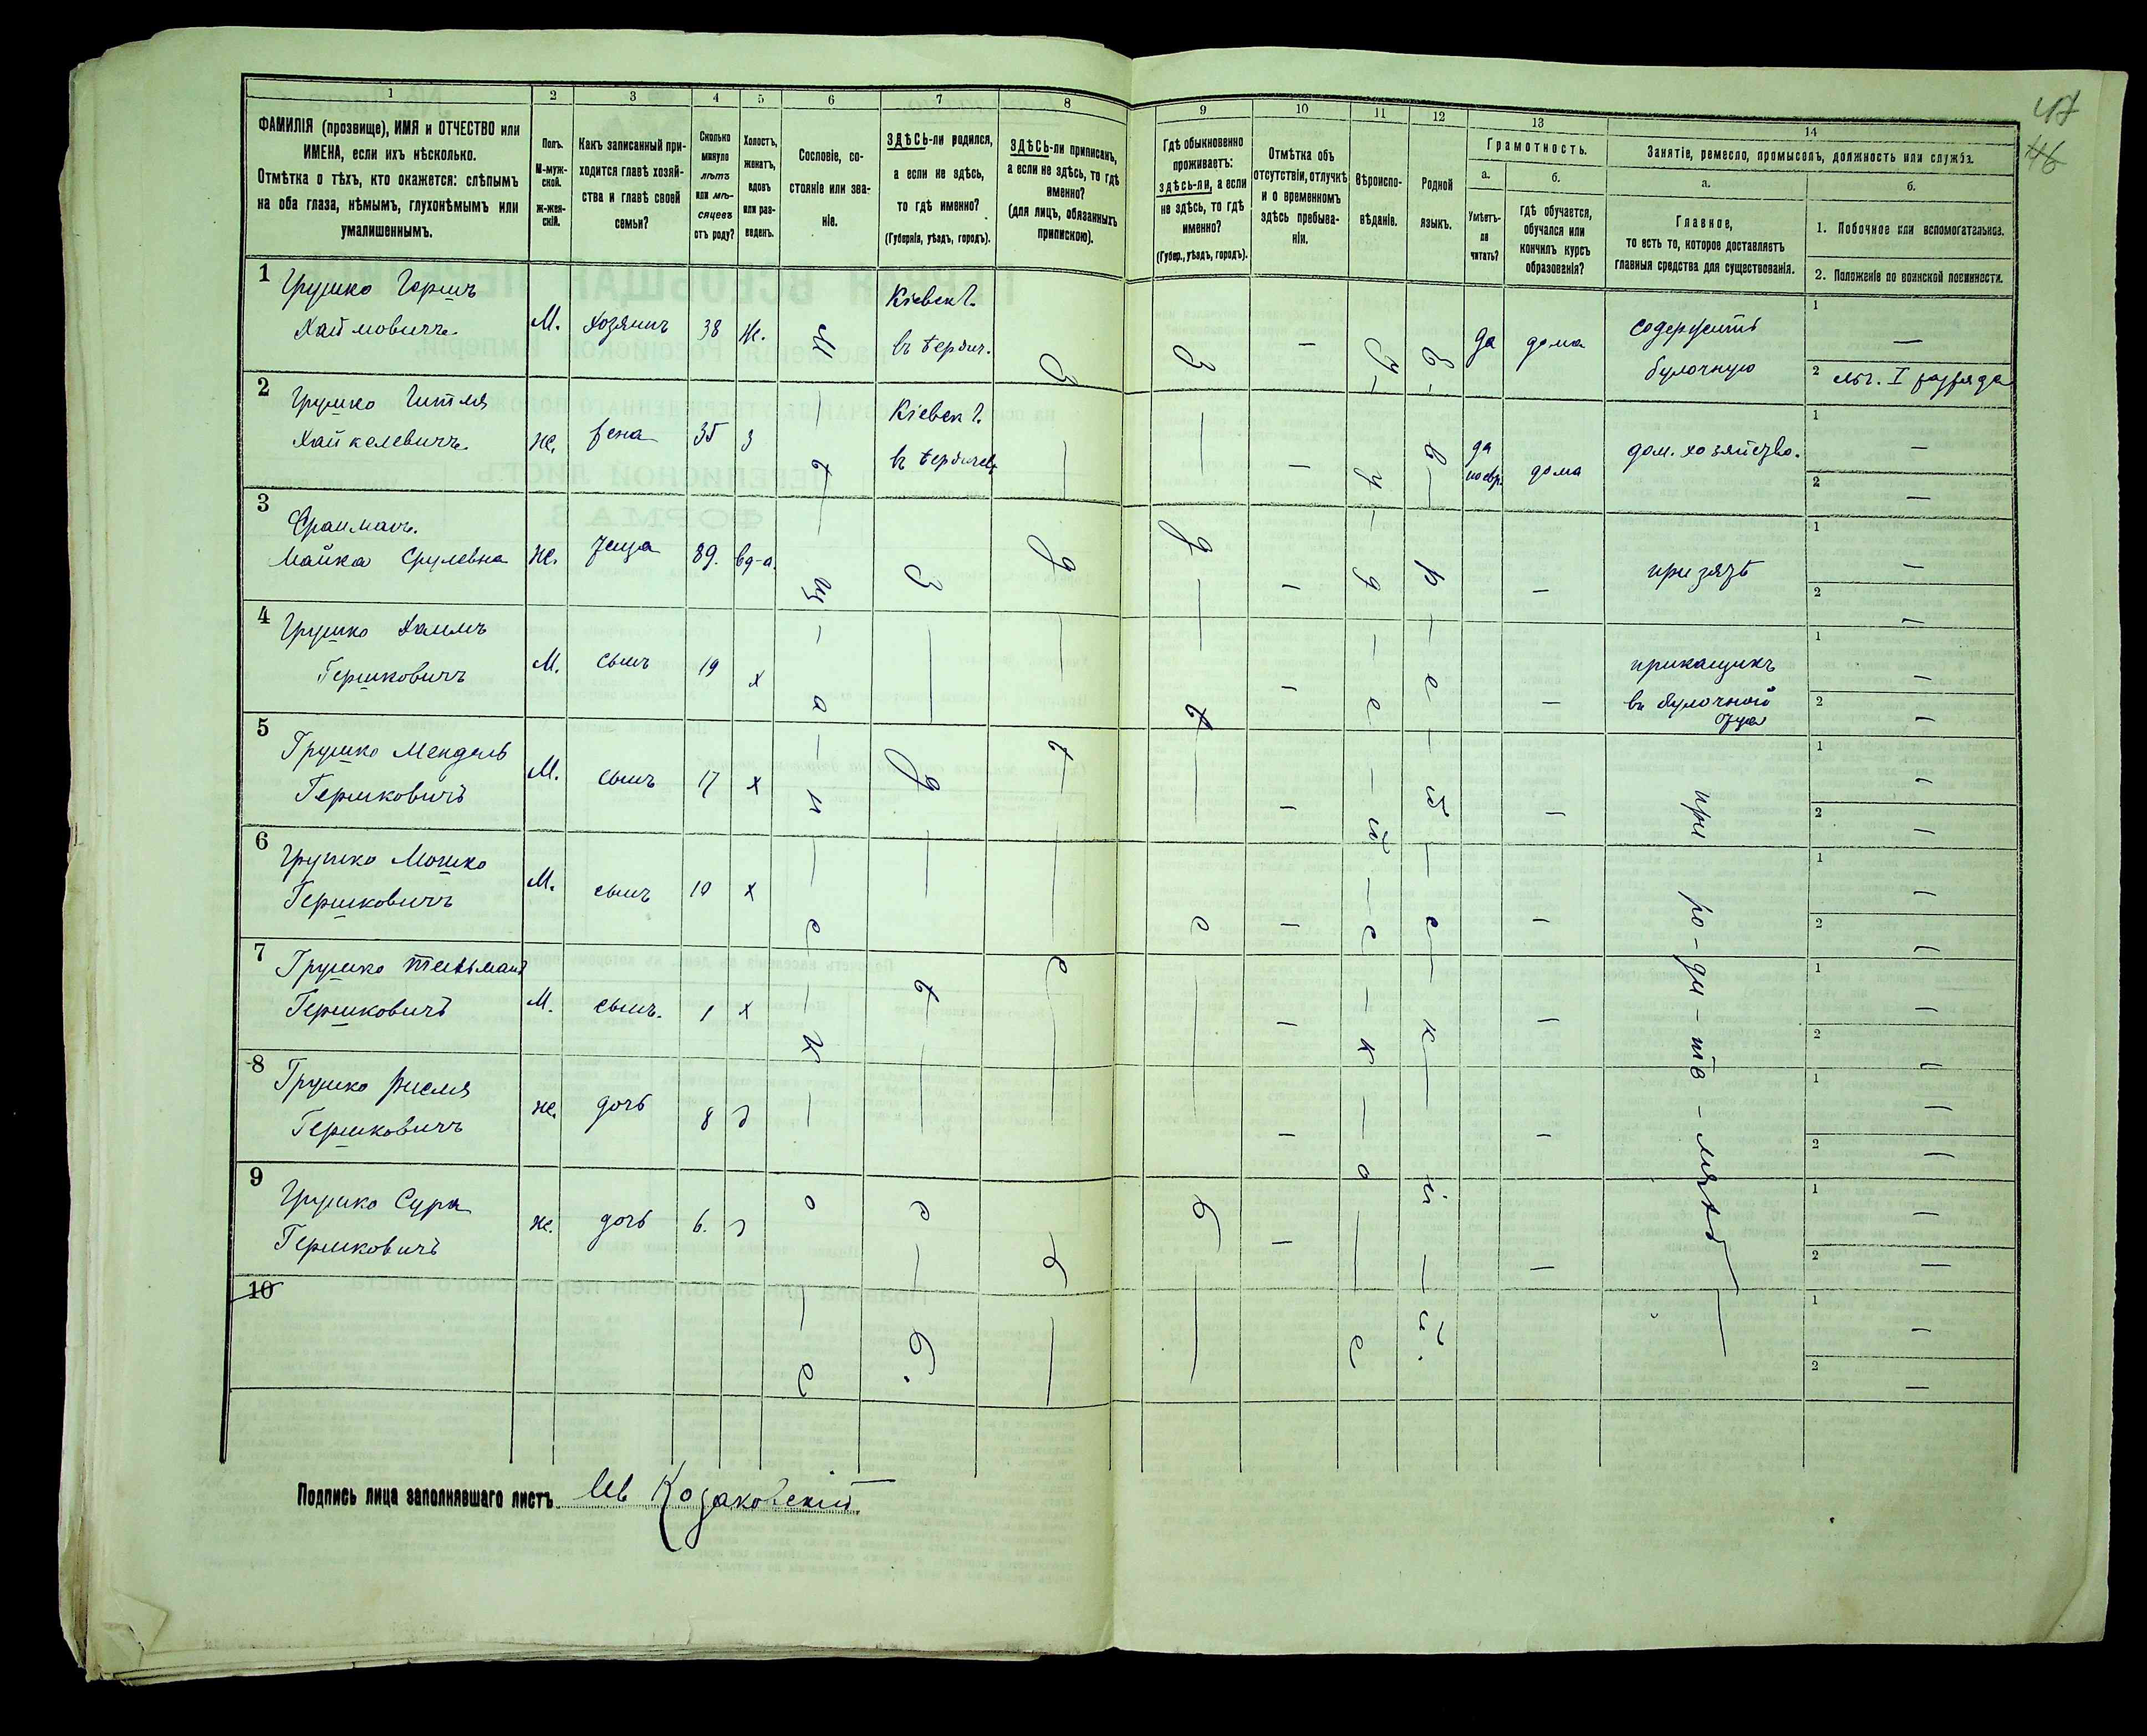 47
46
1 2 3 4 5 6 7 8 9 10 11 12 13 14
ФАМИЛІЯ (прозвище), ИМЯ и ОТЧЕСТВО или
ИМЕНА, если ихъ нѣсколько.
Отмѣтка о тѣхъ, кто окажется: слѣпымъ
на оба глаза, нѣмымъ, глухонѣмымъ или
умалишеннымъ.
Полъ.
М-муж-
ской.
Ж-жен-
скій.
Какъ записанный при-
ходится главѣ хозяй-
ства и главѣ своей
семьи?
Сколько
минуло
лѣтъ
или мѣ-
сяцевъ
отъ роду?
Холостъ,
женатъ,
вдовъ
или раз-
веденъ.
Сословіе, со-
стояніе или зва-
ніе.
ЗДѢСЬ-ли родился,
а если не здѣсь,
то гдѣ именно?
(Губернія, уѣздъ, городъ).
ЗДѢСЬ-ли приписанъ,
а если не здѣсь, то гдѣ
именно?
(для лицъ, обязанныхъ
припискою).
Гдѣ обыкновенно
проживаетъ:
здѣсь-ли, а если
не здѣсь, то гдѣ
именно?
(Губер., уѣздъ, городъ).
Отмѣтка объ
отсутствіи, отлучкѣ
и о временномъ
здѣсь пребыва-
ніи.
Вѣроиспо-
вѣданіе.
Родной
языкъ.
Грамотность.
а.
Умѣетъ-
ли
читать?
б.
Гдѣ обучается,
обучался или
кончилъ курсъ
образованія?
Занятіе, ремесло, промыселъ, должность или служба.
а.
Главное,
то есть то, которое доставляетъ
главныя средства для существованія.
б.
1. Побочное или вспомогательное.
2. Положеніе по воинской повинности.
1 Грушко Гершъ
Хаймовичъ М. Хозяинъ 38 Ж. Кіевск г.
въ Бердич. З З да дома содержитъ
булочную
1 —
2 льг. I разряда
2 Грушко Гитля
Хайкелевичъ ж. жена 35 з Кіевск г.
въ Бердичев да
по евр. дома дом. хозяйство.
1 —
2 —
3 Фраиманъ.
Майка Срулевна ж. теща 89. вд-а. при зятѣ
1 —
2 —
4 Грушко Хаимъ
Гершковичъ М. сынъ 19 х приказчикъ
въ булочной
отца
1 —
2 —
5 Грушко Мендель
Гершковичъ М. сынъ 17 х
1 —
2 —
6 Грушко Мошко
Гершковичъ М. сынъ 10 х
1 —
2 —
7 Грушко
Гершковичъ М. сынъ. 1 х
1 —
2 —
8 Грушко Рисля
Гершковичъ ж. дочь 8 д
1 —
2 —
9 Грушко Сура
Гершковичъ ж. дочь 6. д
1 —
2 —
10
1 —
2 —
м-ѣ-щ-а-н-е-к-о-е
З-д-ѣ-с-ь.
З-д-ѣ-с-ь
З-д-ѣ-с-ь
І-у-д-е-й-с-к-о-е
Е-в-р-е-й-с-к-і-й.
при ро-ди-те-ляхъ
Подпись лица заполнявшаго листъ Лев Козаковскій